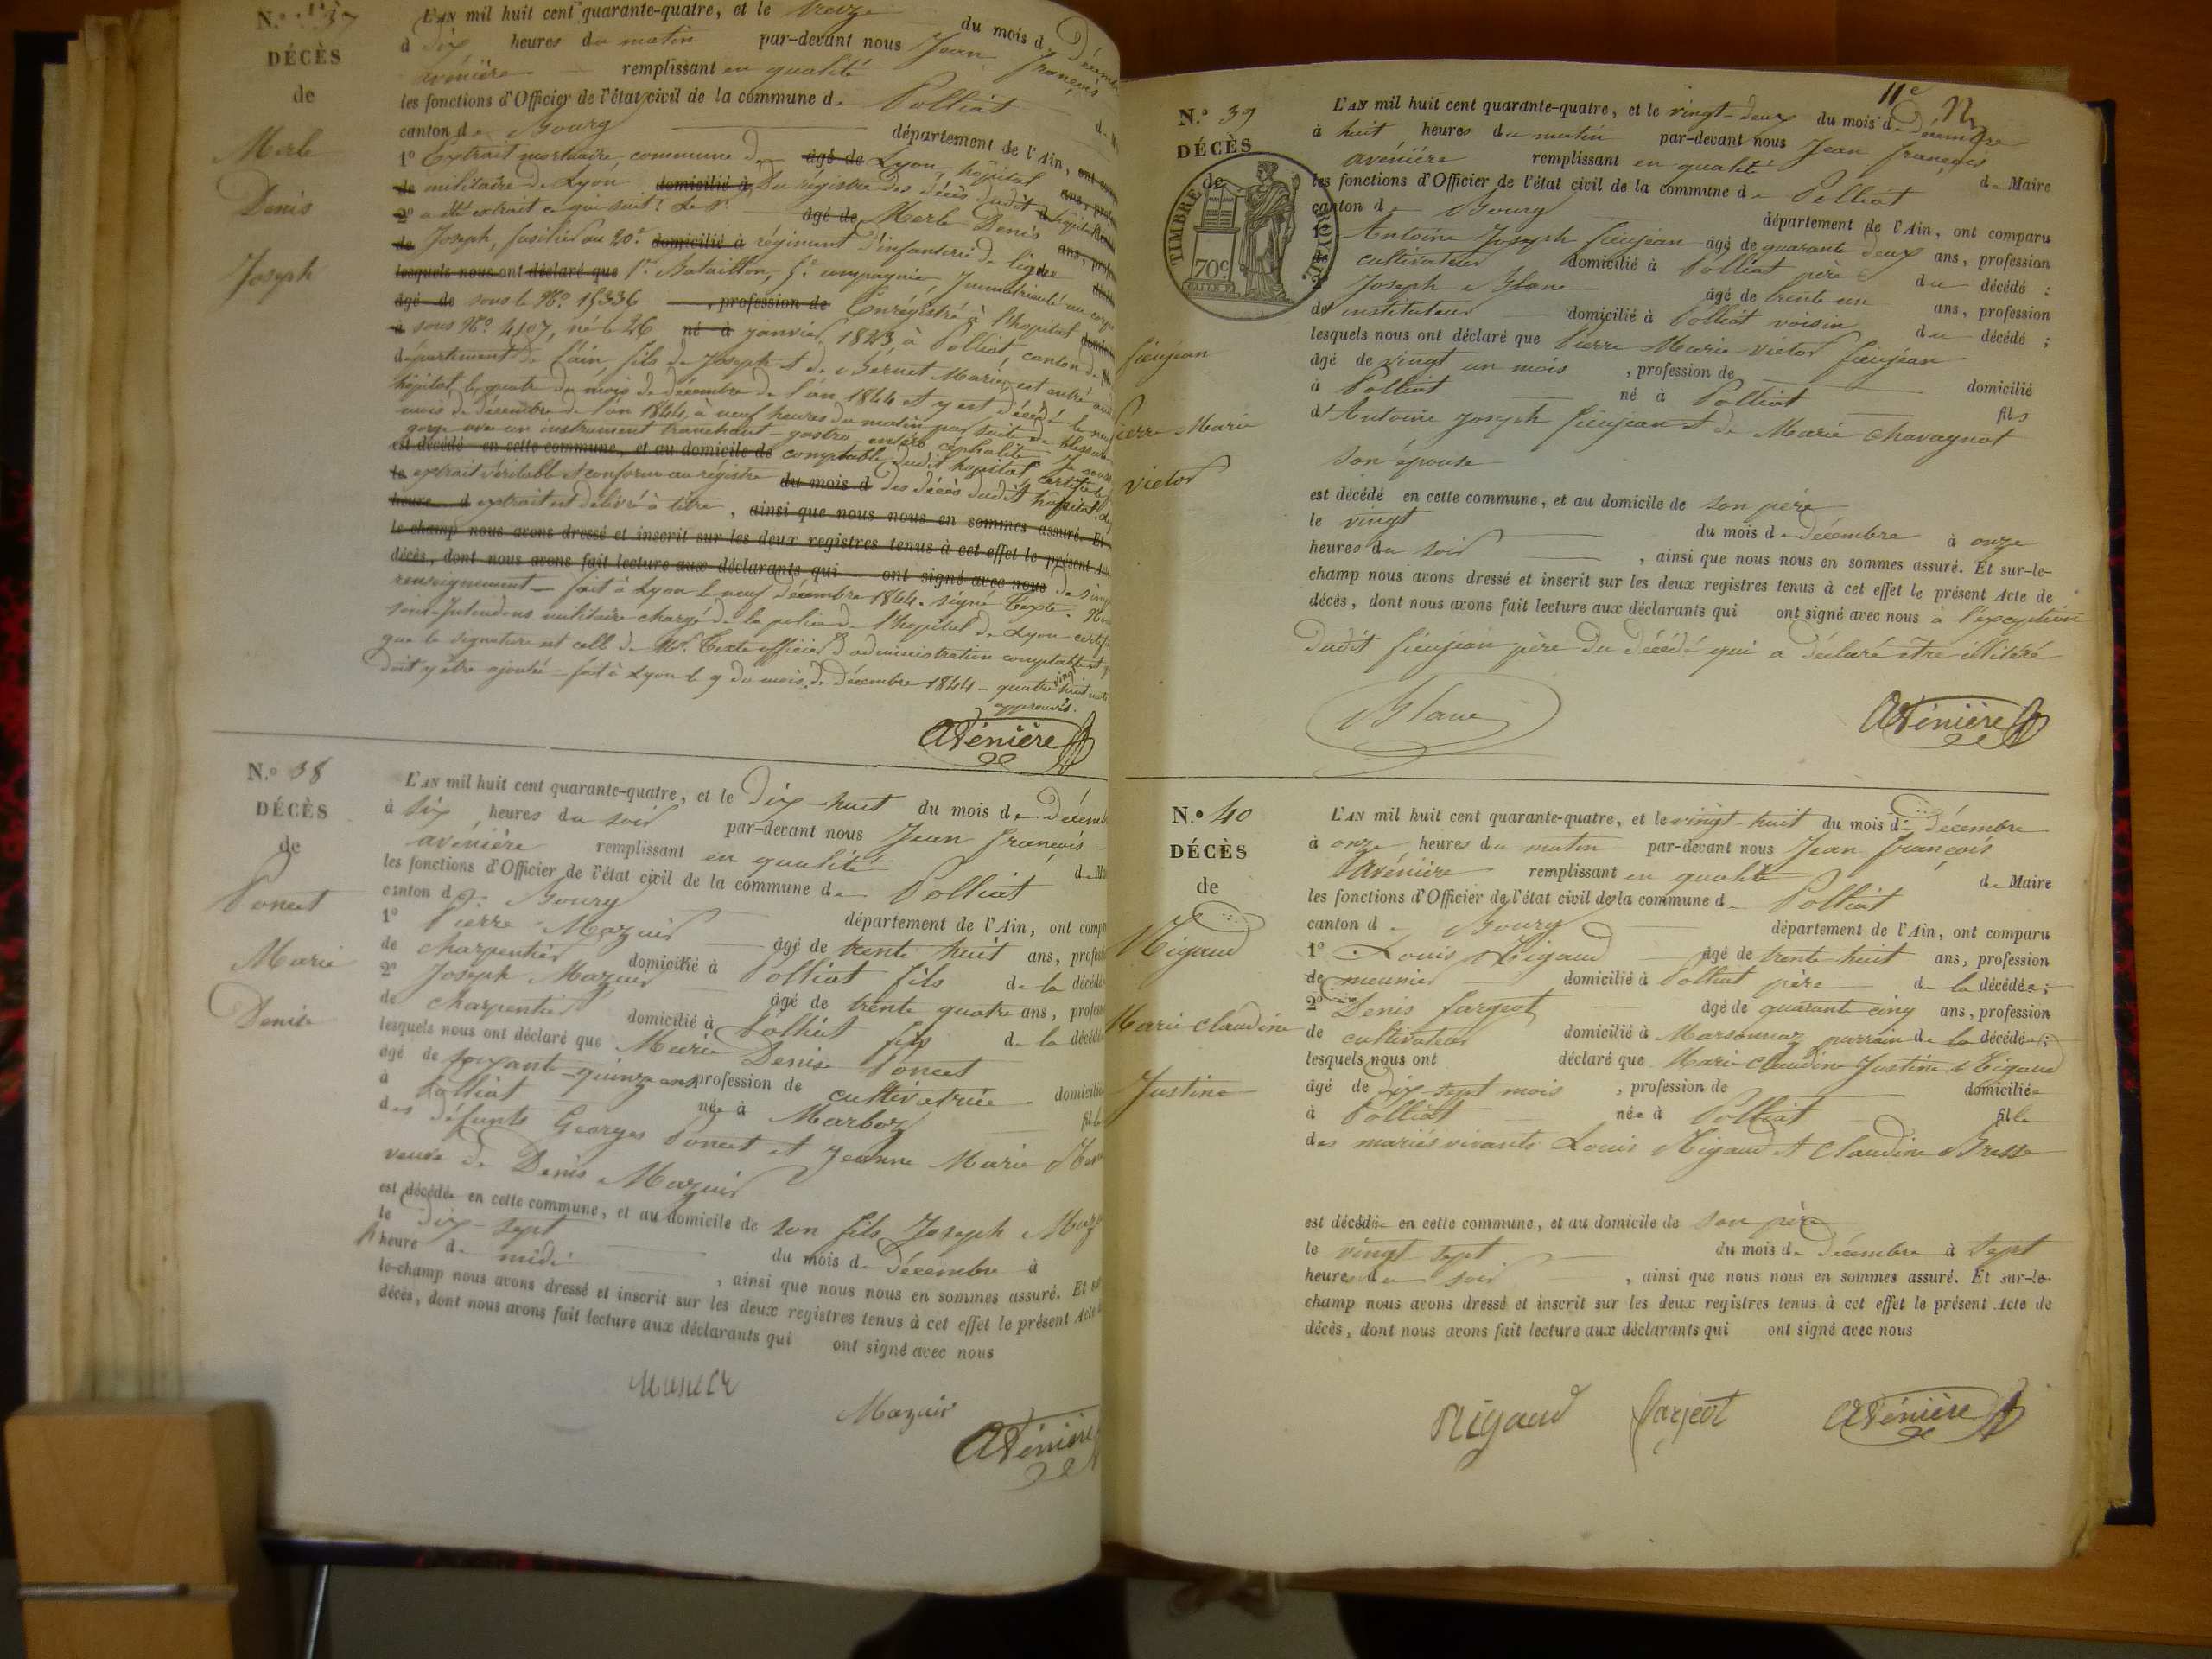 N.° 37
DÉCÈS
de
Merle
Denis
Joseph
L'AN mil huit cent quarante-quatre, et le treize du mois de Décem
à dix heures du matin par-devant nous Jean François
avénière remplissant en qualité
les fonctions d'Officier de l'état civil de la commune de Polliat
canton de Bourg département de l'Ain, ont com
1° Extrait mortuaire, commune de âgé de Lyon, hôpital ans, prof
de militaire de Lyon domicilié à Du régistre des décès dudit hôpital
2° a été extrait ce qui suit: Le Sr. âgé de Merle Denis ans, prof
de Joseph, fusilier au 20e domicilié à régiment d'infanterie de ligne
lesquels nous ont déclaré que 1er Bataillon, 5e compagnie, Immatriculé au corps
âgé de sous le N° 15336, profession de Enrégistré à l'hopital
à sous N° 4107, né le 26 né à janvier 1823 à Polliat, canton de
département de l'ain, fils de Joseph et de Bernet Marie, est entré audit
hôpital le quatre du mois de décembre de l'an 1844 et y est décédé le neuf
mois de décembre de l'an 1844, à neuf heures du matin par suite de blessure
gorge avec un instrument tranchant - gastro entéro céphalite - Je sous
est décédé en cette commune, et au domicile de comptable dudit hopital, certifie
le extrait véritable et conforme au régistre du mois d des décès dudit hôpital. Le
heure d extrait est délivré à titre, ainsi que nous nous en sommes assuré. Et
le champ nous avons dressé et inscrit sur les deux registres tenus à cet effet le présent
décès, dont nous avons fait lecture aux déclarants qui ont signé avec nous de simp
renseignement - fait à Lyon le neuf décembre 1844. signé Texte. Nous
sous-Intendant militaire chargé de la police de l'hopital de Lyon - certif
que la signature est celle de Mr. Texte officier d'administration comptable et
doit y être ajoutée - fait à Lyon le 9 du mois de décembre 1844 - quatre vingt huit mots
approuvés.
Avénière
N.° 38
DÉCÈS
de
Poncet
Marie
Denise
L'AN mil huit cent quarante-quatre, et le dix-huit du mois de décemb
à six heures du soir par-devant nous Jean françois
avénière remplissant en qualité de Ma
les fonctions d'Officier de l'état civil de la commune de Polliat
canton de Bourg département de l'Ain, ont comp
1° Pierre Mazuir âgé de trente huit ans, profess
de charpentier domicilié à Polliat fils de la décédé
2° Joseph Mazuir âgé de trente quatre ans, profess
de charpentier domicilié à Polliat fils de la décédé
lesquels nous ont déclaré que Marie Denise Poncet
âgé de soixante-quinze ans profession de cultivatrice domicilié
à Polliat née à Marboz fille
des défunts Georges Poncet et Jeanne Marie
veuve de Denis Mazuir
est décédée en cette commune, et au domicile de son fils Joseph Maz
le dix-sept du mois de décembre à
heure de midi, ainsi que nous nous en sommes assuré. Et sur
le-champ nous avons dressé et inscrit sur les deux registres tenus à cet effet le présent Acte
décès, dont nous avons fait lecture aux déclarants qui ont signé avec nous
Mazuir
Avénière
11e
N.° 39
DÉCÈS
de
TIMBRE ROYAL
70c
fieujean
Pierre Marie
victor
L'AN mil huit cent quarante-quatre, et le vingt-deux du mois de décembre
à huit heures du matin par-devant nous Jean françois
avénière remplissant en qualité de Maire
les fonctions d'Officier de l'état civil de la commune de Polliat
canton de Bourg département de l'Ain, ont comparu
1° Antoine Joseph fieujean âgé de quarante deux ans, profession
de cultivateur domicilié à Polliat père du décédé :
2° Joseph Blanc âgé de trente un ans, profession
de instituteur domicilié à Polliat voisin du décédé ;
lesquels nous ont déclaré que Pierre Marie victor fieujean
âgé de vingt un mois, profession de domicilié
à Polliat né à Polliat fils
d'Antoine Joseph fieujean et de Marie Chavagnat
son épouse
est décédé en cette commune, et au domicile de son père
le vingt du mois de décembre à onze
heures du soir, ainsi que nous nous en sommes assuré. Et sur-le-
champ nous avons dressé et inscrit sur les deux registres tenus à cet effet le présent Acte de
décès, dont nous avons fait lecture aux déclarants qui ont signé avec nous à l'exception
dudit fieujean père du décédé qui a déclaré être illitéré
Blanc
Avénière
N.° 40
DÉCÈS
de
Rigaud
Marie Claudine
Justine
L'AN mil huit cent quarante-quatre, et le vingt-huit du mois de décembre
à onze heures du matin par-devant nous Jean françois
avénière remplissant en qualité de Maire
les fonctions d'Officier de l'état civil de la commune de Polliat
canton de Bourg département de l'Ain, ont comparu
1° Louis Rigaud âgé de trente-huit ans, profession
de meunier domicilié à Polliat père de la décédée ;
2° Denis fargeot âgé de quarante cinq ans, profession
de cultivateur domicilié à Marsonnaz parrain de la décédée ;
lesquels nous ont déclaré que Marie Claudine Justine Rigaud
âgé de dix sept mois, profession de domiciliée
à Polliat née à Polliat fille
des mariés vivants Louis Rigaud et Claudine Bresse
est décédée en cette commune, et au domicile de son père
le vingt sept du mois de décembre à sept
heures du soir, ainsi que nous nous en sommes assuré. Et sur-le-
champ nous avons dressé et inscrit sur les deux registres tenus à cet effet le présent Acte de
décès, dont nous avons fait lecture aux déclarants qui ont signé avec nous
Rigaud farjeot Avénière